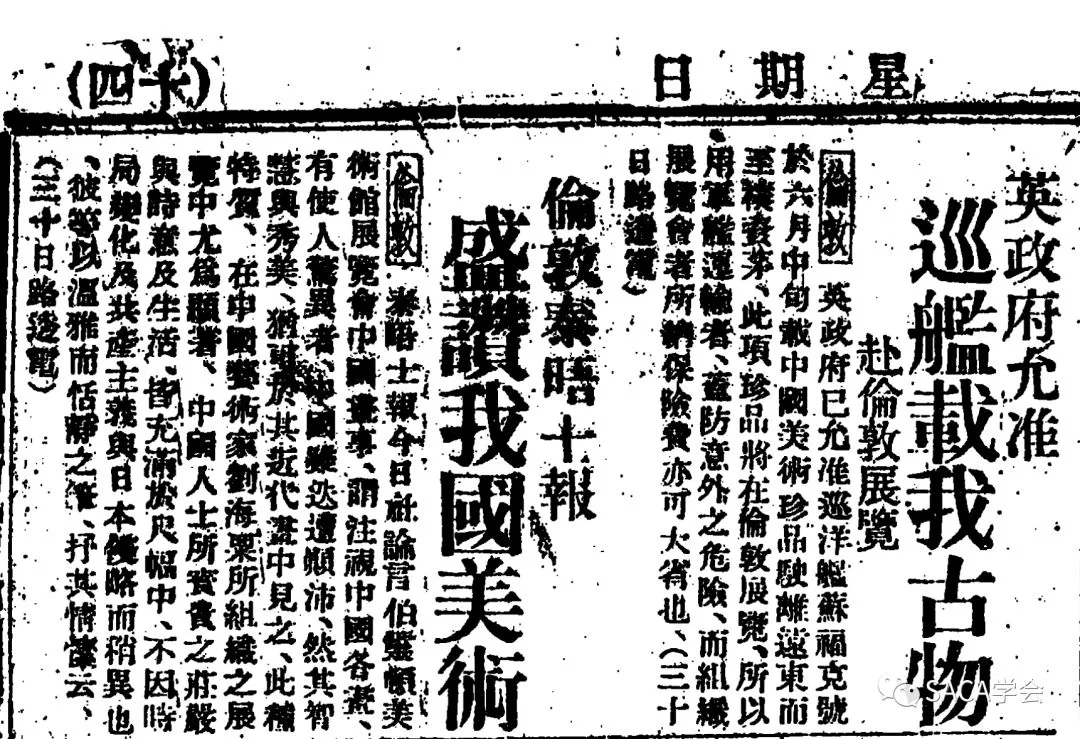 星期日
(十四)
英政府允准
巡艦載我古物
赴倫敦展覽
倫敦 英政府已允准巡洋艦蘇福克號
於六月中旬載中國美術珍品駛離遠東而
至樸資茅、此項珍品將在倫敦展覽、所以
用軍艦運輸者、蓋防意外之危險、而組織
展覽會者所納保險費亦可大省也、(三十
日路透電)
倫敦泰晤士報
盛讚我國美術
倫敦 泰晤士報今日社論言伯靈頓美
術館展覽會中國畫事、謂注視中國各畫、
有使人驚異者、中國雖迭遭顛沛、然其智
慧與秀美、猶見於其近代畫中見之、此種
特質、在中國藝術家劉海粟所組織之展
覽中尤為顯著、中國人士所寶貴之莊嚴
與詩意及生活、皆充滿於尺幅中、不因時
局變化及共產主義與日本侵略而稍異也
、彼等以溫雅而恬靜之筆、抒其情懷云、
(三十日路透電)
SACA学会